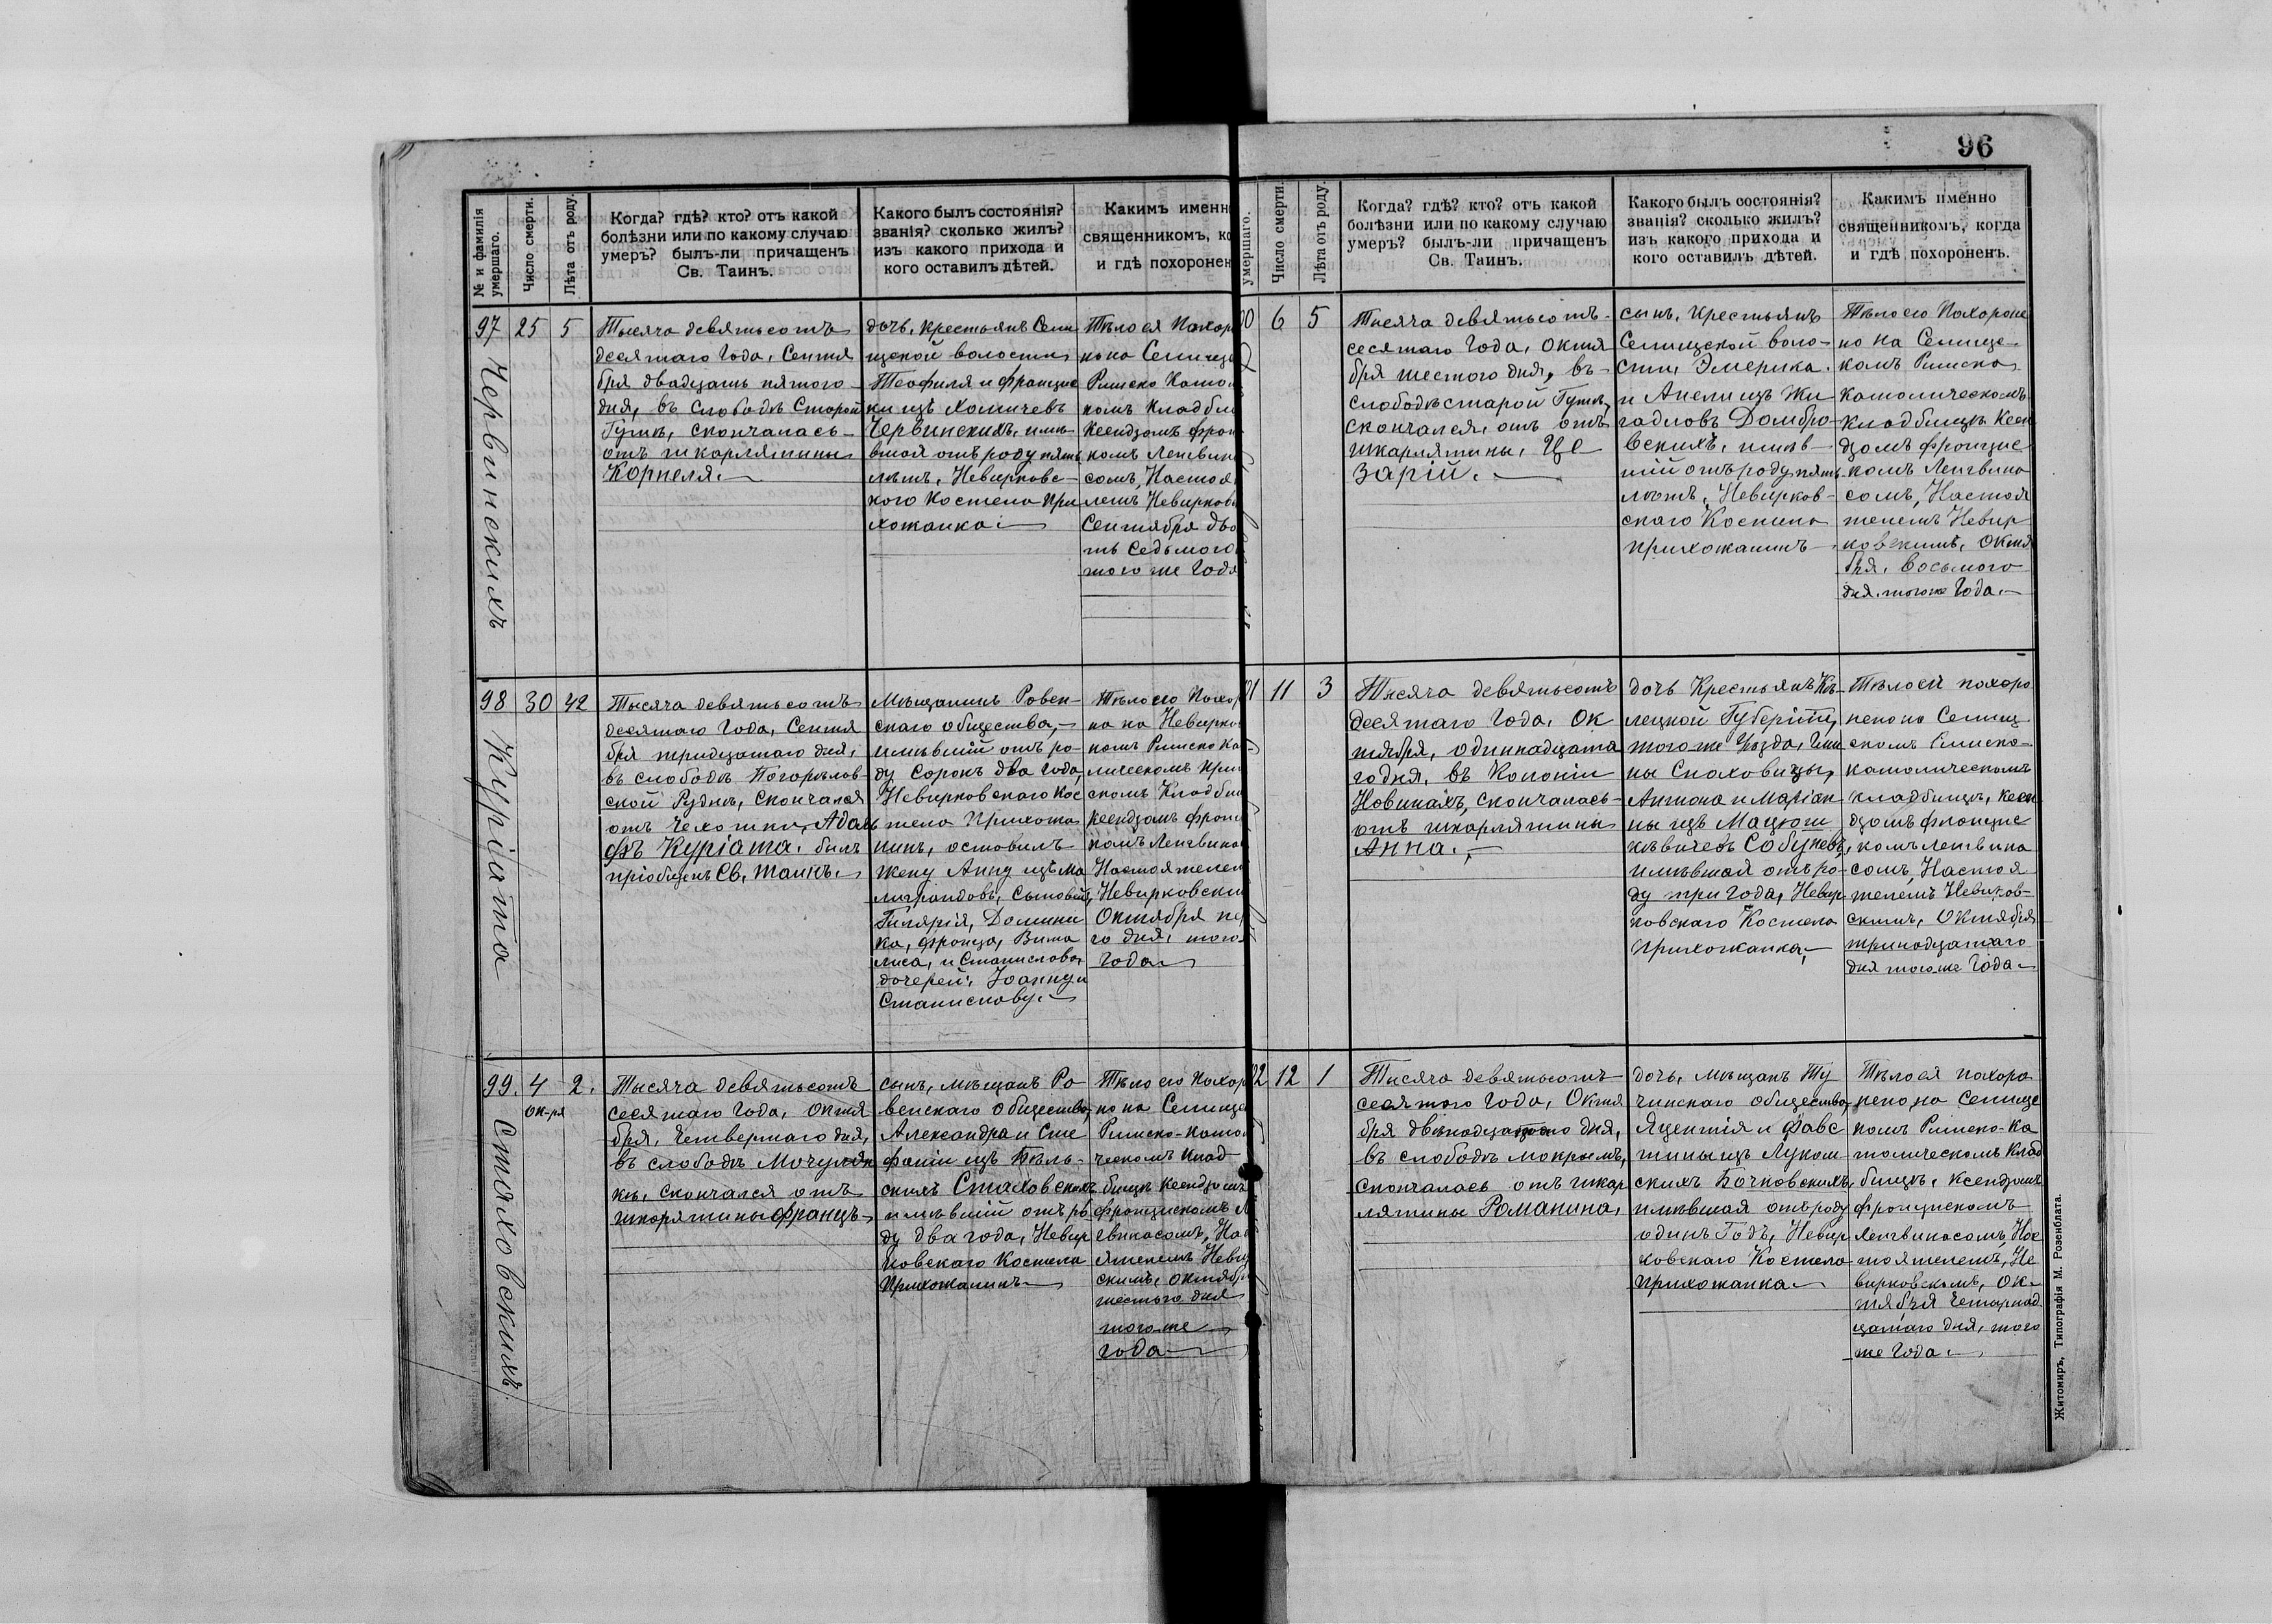 96
№ и фамилія умершаго.
Число смерти.
Лѣта отъ роду.
Когда? гдѣ? кто? отъ какой
болѣзни или по какому случаю
умеръ? былъ-ли причащенъ
Св. Таинъ.
Какого былъ состоянія?
званія? сколько жилъ?
изъ какого прихода и
кого оставилъ дѣтей.
Какимъ именн
священникомъ, ко
и гдѣ похоронен
97
25
5
Червинскихъ
Тысяча девятьсотъ
десятаго Года, Сентя
бря двадцать пятого
дня, въ Слободѣ Старой
Гутѣ, скончалась
отъ шкарлятины
Корнеля.
дочь, крестьянъ Сели
щской волости,
Теофиля и Францис
ки изъ Хомичевъ
Червинскихъ, имѣ
вшая отъ роду пять
лѣтъ, Невирковс
кого Костела При
хожанка.
Тѣло ея Похор
но на Селищс
Римско Като
комъ Кладби
Ксендзомъ Фран
комъ Ленгвин
сомъ, Настоя
лемъ Невирковс
Сентября два
ть Седьмого
того же Года
98
30
42
Куріата
Тысяча девятьсотъ
десятаго Года, Сентя
бря тридцатаго дня,
въ слободѣ Погорѣлов
ской Руднѣ, Скончался
отъ чехотки, Адоль
фъ Куріата. былъ
пріобщенъ Св, таинъ.
Мѣщанинъ Ровен-
скаго общества,
имѣвшій отъ ро-
ду Сорокъ два года,
Невирковскаго Кос
тела Прихожа
нинъ, оставилъ
жену Анну изъ Ма
лиграндовъ, Сыновей,
Гилярія, Домини
ка, Франца, Вита
лиса, и Станислова,
дочерей, Іоанну и
Станиславу.
Тѣло его Похор
но на Невирко
комъ Римско Ка
лическомъ При
скомъ Кладби
Ксендзомъ Фран
комъ Ленгвина
Настоятелем
Невирковски
Октября пе
го дня, того
Года
99.
4
ок-ря
2.
Стаховскихъ
Тысяча девятьсотъ
сесятаго Года, Октя
бря, Четвертаго дня,
въ слободѣ Мочулян
кѣ, Скончался отъ
шкорятины Францъ
сынъ, мѣщанъ Ро
венскаго общества,
Александра и Сте
фаніи изъ Бѣль-
скихъ Стаховскихъ
имѣвшій отъ ро
ду два года, Невир
ковскаго Костела
Прихожанинъ
Тѣло его Похор
но на Селище
Римско-като
ческомъ Клад
бищѣ Ксендзомъ
Францискомъ Л
гвинасомъ, Нас
ятелемъ Невир
скимъ, Октября
шестого дня
того же
года
умершаго.
Число смерти.
Лѣта отъ роду.
Когда? гдѣ? кто? отъ какой
болѣзни или по какому случаю
умеръ? былъ-ли причащенъ
Св. Таинъ.
Какого былъ состоянія?
званія? сколько жилъ?
изъ какого прихода и
кого оставилъ дѣтей.
Какимъ именно
священникомъ, когда
и гдѣ похороненъ.
00
6
5
Тысяча девятьсотъ-
сесятаго Года, Октя
бря шестого дня, въ
слободѣ старой Гутѣ,
скончался, отъ отъ
шкарлятины, Це
зарій.
сынъ, Крестьянъ
Селищской воло-
сти, Эмерика
и Анели изъ Жи
гадловъ Домбро
вскихъ, имѣв
шій отъ роду пять
лѣтъ, Невирков-
скаго Костела
прихожанинъ
Тѣло его Похороне
но на Селище
комъ Римско
Католическомъ
Кладбищѣ Ксен
дзомъ Францис
комъ Ленгвина
сомъ, Настоя
телемъ Невир
ковскимъ, Октя
бря, восьмого
дня, того же Года.
01
11
3
Тысяча девятьсотъ
десятаго Года, Ок
тября, одиннадцата
го дня, въ Колоніи
Новинахъ, скончалась
отъ шкарлятины
Анна.
дочь Крестьянъ Кѣ-
лецкой Губерніи,
того же Уѣзда, Гми
ны Снаховицы,
Антона и Маріан
ны изъ Мацюш
кѣвичевъ Собуневъ,
имѣвшая отъ ро-
ду три года, Невир
ковскаго Костела
прихожанка,
Тѣло ей похоро
нено на Селищ
скомъ Римско-
католическомъ
кладбищѣ, Ксен
дзомъ Францис
комъ Ленгвина
сомъ, Настоя
телемъ Невирков-
скимъ, Октября
тринадцатаго
дня того же Года
02
12
1
Тысяча девятьсотъ
сесятого Года, Октя
бря двѣнадцатого дня,
въ слободѣ мокромъ,
скончалась отъ шкар
лятины Романина,
дочь, мѣщанъ Ту
чинскаго общества,
Яцентія и Фавс
тины изъ Луком
скихъ Бочковскихъ,
имѣвшая отъ роду
одинъ Годъ, Невир
ковскаго Костела
прихожанка
Тѣло ея похоро
нено, на Селище
комъ Римско-Ка
толическомъ Клад
бищѣ, Ксендзомъ
Францискомъ
Ленгвинасомъ, Нас
тоятелемъ, Не
вирковскимъ, Ок-
тября Четырнад
цатаго дня, того
же Года.
Житомиръ, Типографія М. Розенблата.